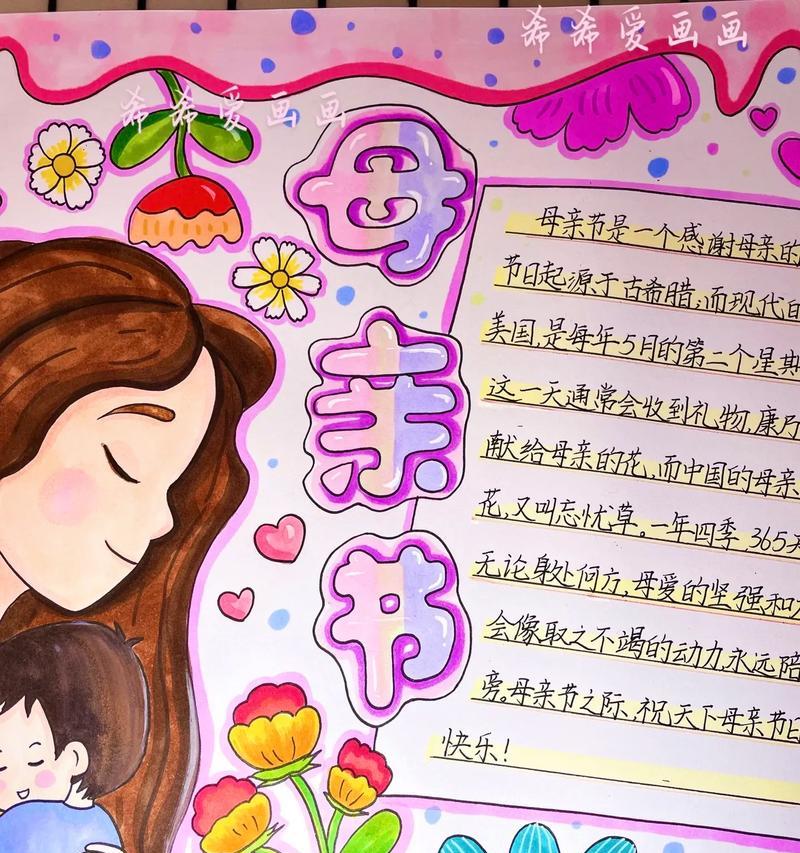 希希爱画画
希希爱画画
母亲节
母亲节是一个感谢母亲的
节日起源于古希腊;而现代的
美国,是每年5月的第二个星期
这一天通常会收到礼物,康乃
献给母亲的花,而中国的母亲
花,又叫忘忧草。一年四季365天
无论身处何方,母爱的坚强和
会像取之不竭的动力,永远陪
旁。母亲节之际,祝天下母亲节日
快乐!